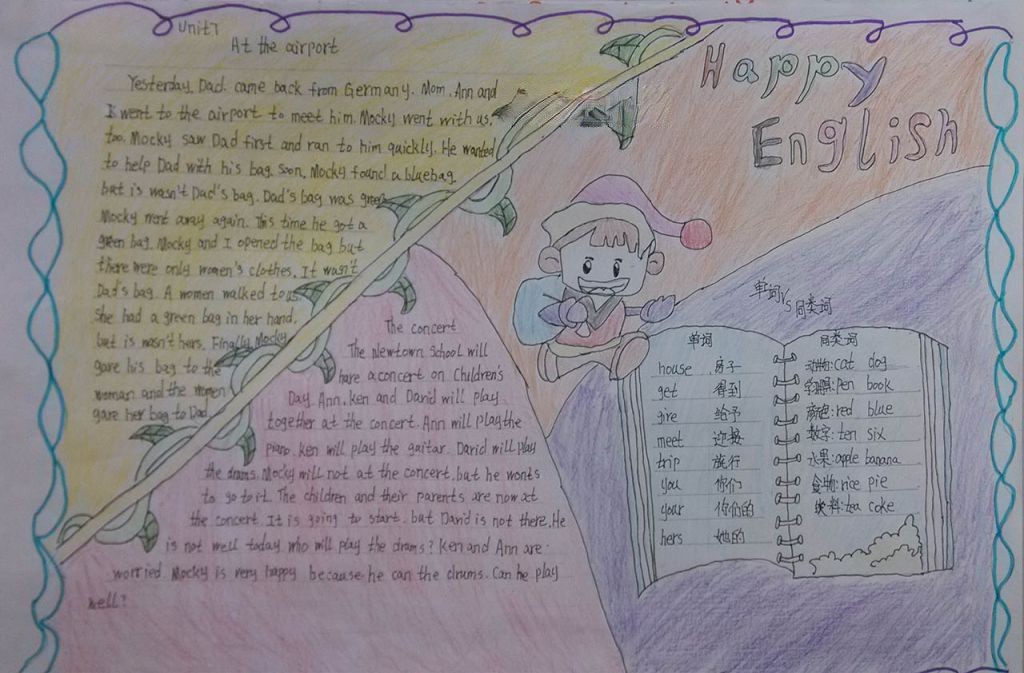 Unit7
At the airport
Yesterday, Dad. came back from Germany. Mom. Ann and
I went to the airport to meet him. Mocky went with us,
too. Mocky saw Dad first and ran to him quickly. He wanted
to help Dad with his bag. Soon, Mocky found a bluebag
but is wasn't Dad's bag. Dad's bag was green
Mocky went away again. This time he got a
green bag. Mocky and I opened the bag but
there were only women's clothes. It wasn't
Dad's bag. A women walked to us
She had a green bag in her hand,
but is wasn't hers. Finally Mocky
gave his bag to the
woman and the women
gave her bag to Dad.
The concert
The Newtown School will
have a concert on Children's
Day. Ann. Ken and David will play
together at the concert. Ann will play the
piano. Ken will play the guitar. David will play
the drams. Mocky will not at the concert. but he wonts
to go to it. The children and their parents are now at
the concert. It is going to start. but David is not there. He
is not well today who will play the drams? Ken and Ann are
worried. Mocky is very happy because he can the drums. Can he play
well?
Happy
English
单词VS同类词
单词
house 房子
get 得到
give 给予
meet 迎接
trip 旅行
you 你们
your 你们的
hers 她的
同类词
动物:cat dog
学习用品:pen book
颜色:red blue
数字:ten six
水果:apple banana
食物:rice pie
饮料:tea coke